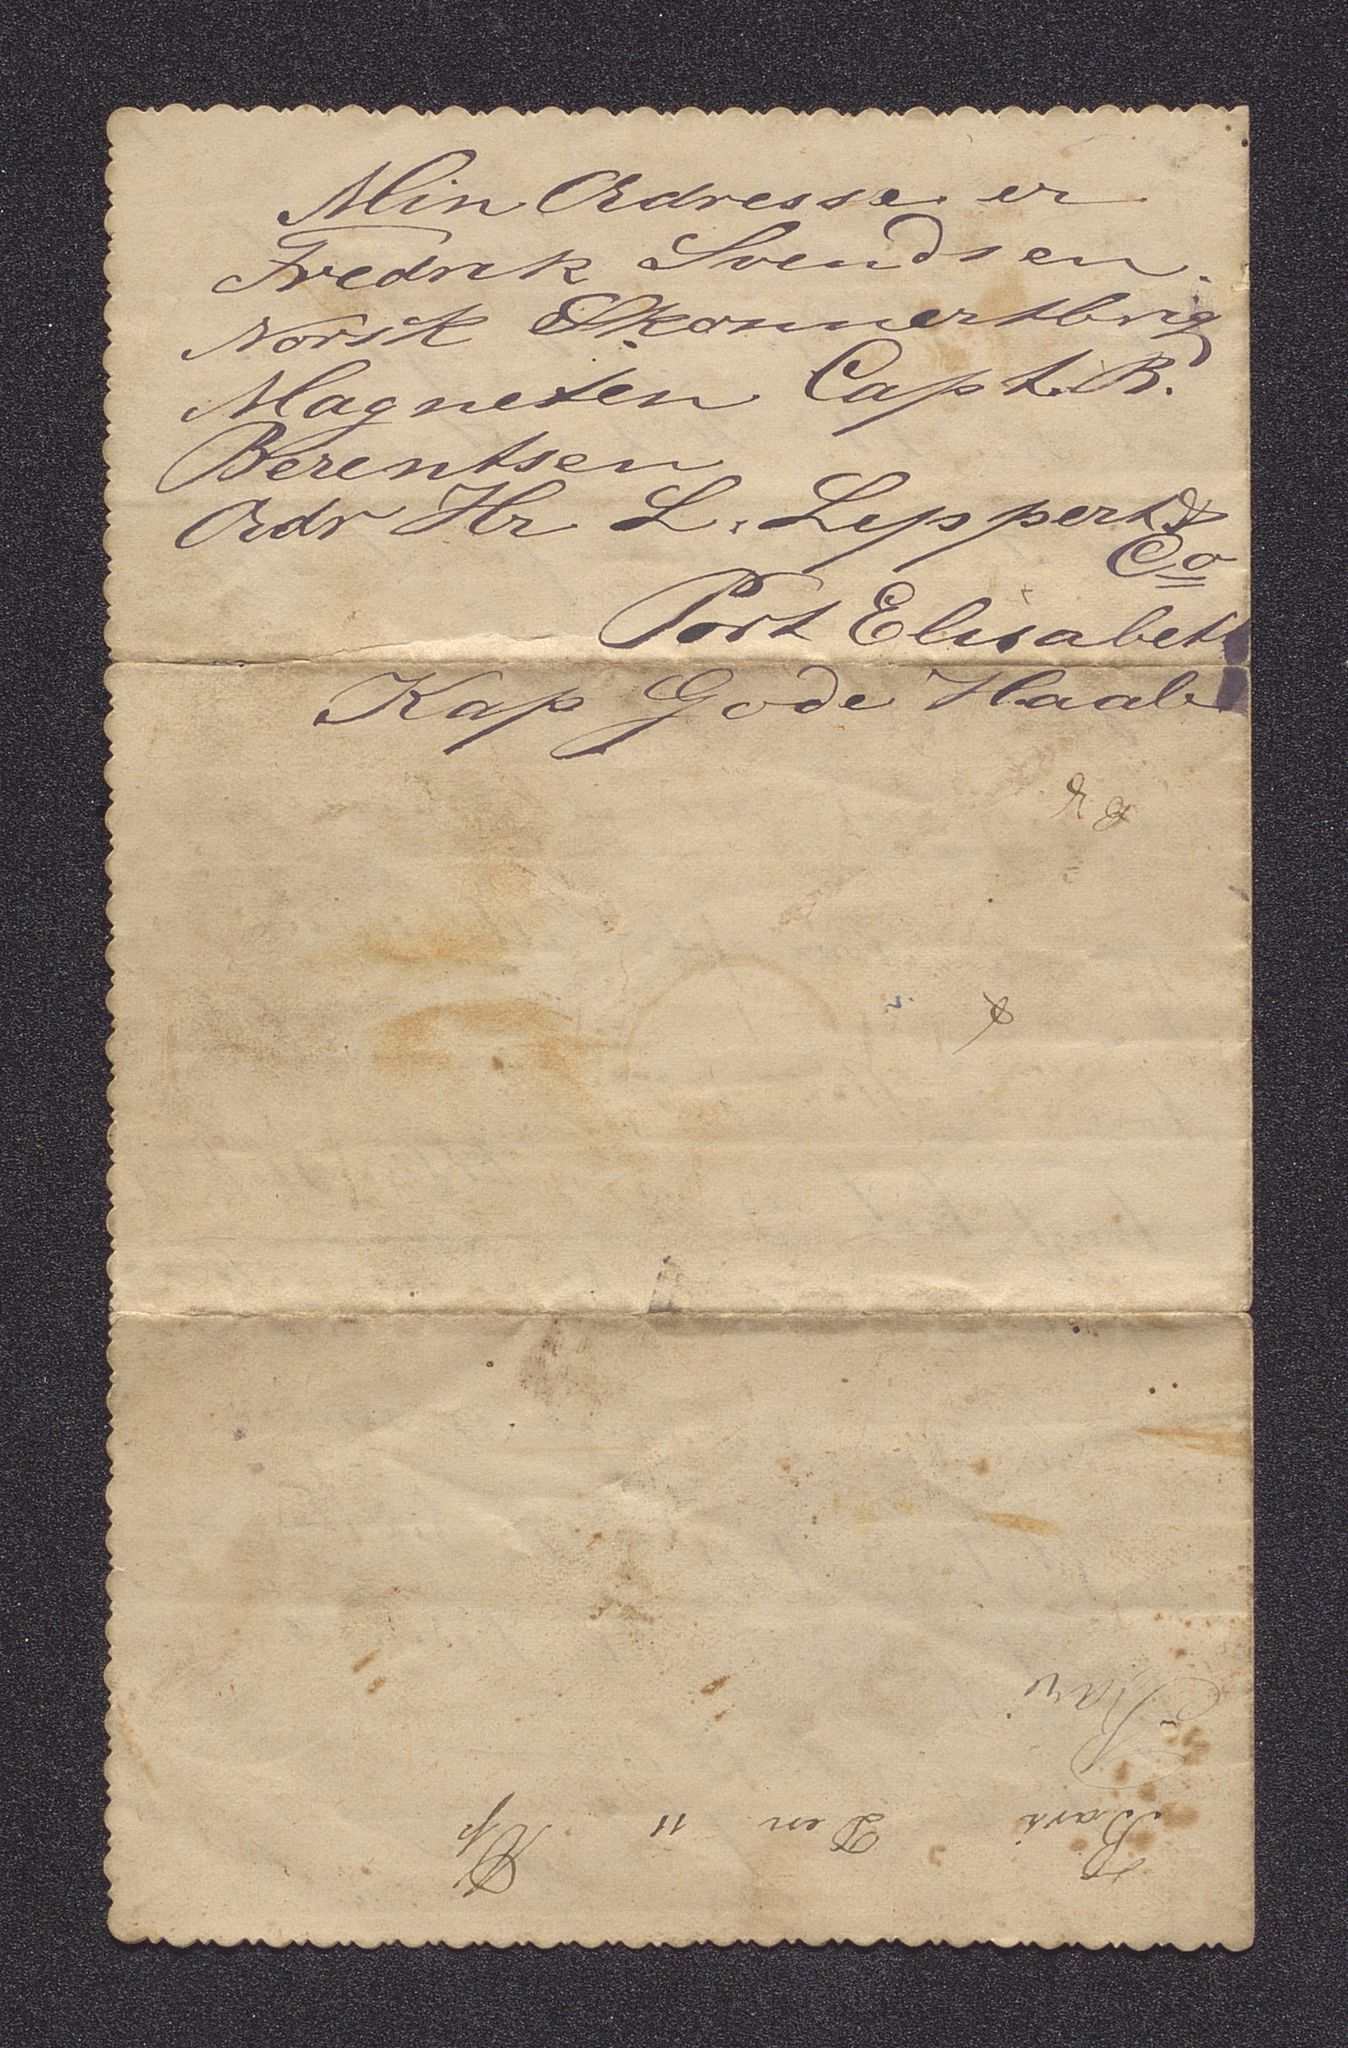 Min Adresse er
Fredrik Svendsen.
Norsk Skonnertbrig
Magneten Capt. B.
Berentsen
Adr Hr L. Leppert &
Co
Port Elisabeth
Kap Gode Haab
Bari
Bari Den 11 Ap